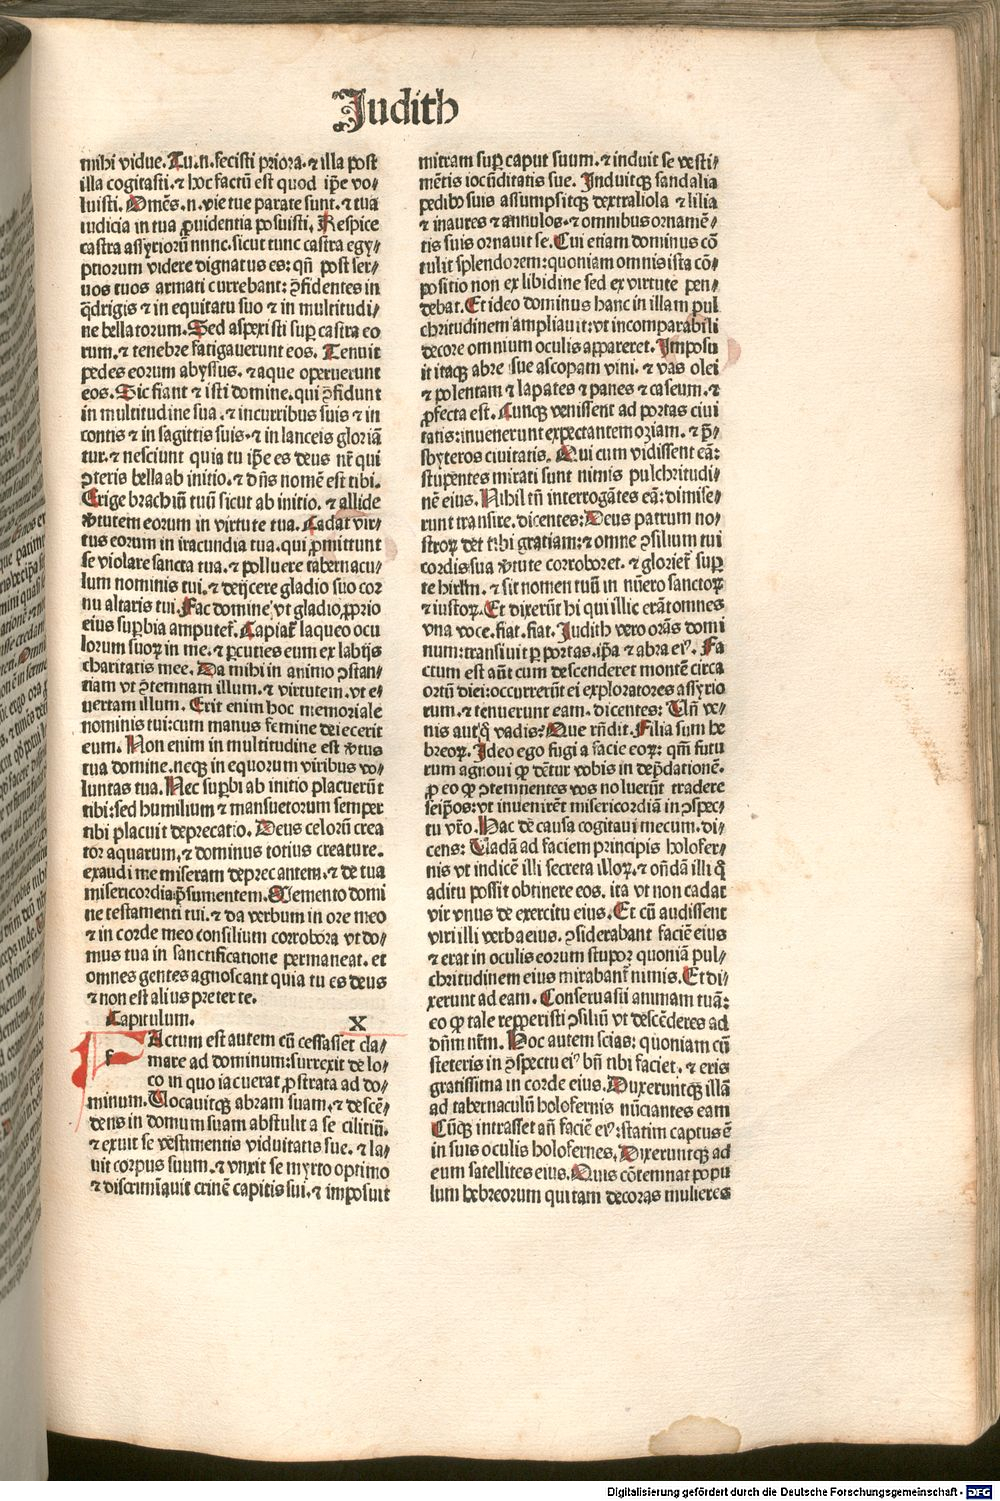 Judith
mihi vidue. Tu.n. fecisti priora. ⁊ illa post
illa cogitasti. ⁊ hoc factũ est quod ip̃e vo⸗
luisti. Om̃es.n. vie tue parate sunt. ⁊ tua
iudicia in tua ꝓuidentia posuisti. Respice
castra assyriorũ nunc. sicut tunc castra egy⸗
ptiorum videre dignatus es: qñ post ser⸗
uos tuos armati currebant: ꝯfidentes in
q̃drigis ⁊ in equitatu suo ⁊ in multitudi⸗
ne bellatorum. Sed aspexisti suꝑ castra eo
rum. ⁊ tenebre fatigauerunt eos. Tenuit
pedes eorum abyssus. ⁊ aque operuerunt
eos. Sic fiant ⁊ isti domine. qui ꝯfidunt
in multitudine sua. ⁊ in curribus suis ⁊ in
contis ⁊ in sagittis suis. ⁊ in lanceis gloriã
tur. ⁊ nesciunt quia tu ip̃e es deus nr̃ qui
ꝯteris bella ab initio. ⁊ dñs nomẽ est tibi.
Erige brachiũ tuũ sicut ab initio. ⁊ allide
v̓tutem eorum in virtute tua. Cadat vir⸗
tus eorum in iracundia tua. qui ꝓmittunt
se violare sancta tua. ⁊ polluere tabernacu⸗
lum nominis tui. ⁊ deijcere gladio suo cor
nu altaris tui. Fac domine vt gladio ꝓprio
eius suꝑbia amputet᷑. Capiat᷑ laqueo ocu
lorum suoꝝ in me. ⁊ ꝑcuties eum ex labijs
charitatis mee. Da mihi in animo ꝯstan⸗
tiam vt ꝯtemnam illum. ⁊ virtutem. vt e⸗
uertam illum. Erit enim hoc memoriale
nominis tui: cum manus femine deiecerit
eum. Non enim in multitudine est v̓tus
tua domine. neqꝫ in equorum viribus vo⸗
luntas tua. Nec suꝑbi ab initio placuerũt
tibi: sed humilium ⁊ mansuetorum semper
tibi placuit deprecatio. Deus celorũ crea
tor aquarum. ⁊ dominus totius creature.
exaudi me miseram deprecantem. ⁊ de tua
misericordia p̃sumentem. Memento domi
ne testamenti tui. ⁊ da verbum in ore meo
⁊ in corde meo consilium corrobora vt do⸗
mus tua in sanctificatione permaneat. et
omnes gentes agnoscant quia tu es deus
⁊ non est alius preter te.
Capitulum. X
f Actum est autem cũ cessasset cla⸗
mare ad dominum: surrexit de lo⸗
co in quo iacuerat ꝓstrata ad do⸗
minum. Uocauitqꝫ abram suam. ⁊ descẽ⸗
dens in domum suam abstulit a se ciliciũ.
⁊ exuit se vestimentis viduitatis sue. ⁊ la⸗
uit corpus suum. ⁊ vnxit se myrto optimo
⁊ discrimĩauit crinẽ capitis sui. ⁊ imposuit
mitram suꝑ caput suum. ⁊ induit se vesti⸗
mẽtis iocũditatis sue. Induitqꝫ sandalia
pedibꝰ suis assumpsitqꝫ dextraliola ⁊ lilia
⁊ inaures ⁊ annulos. ⁊ omnibus ornamẽ⸗
tis suis ornauit se. Cui etiam dominus cõ
tulit splendorem: quoniam omnis ista cõ⸗
positio non ex libidine sed ex virtute pen⸗
debat. Et ideo dominus hanc in illam pul
chritudinem ampliauit: vt incomparabili
decore omnium oculis appareret. Imposu
it itaqꝫ abre sue ascopam vini. ⁊ vas olei
⁊ polentam ⁊ lapates ⁊ panes ⁊ caseum. ⁊
ꝓfecta est. Cunqꝫ venissent ad portas ciui
tatis: inuenerunt expectantem oziam. ⁊ p̃⸗
sbyteros ciuitatis. Qui cum vidissent eã:
stupentes mirati sunt nimis pulchritudi⸗
nẽ eius. Nihil tñ interrogãtes eã: dimise⸗
runt transire. dicentes: Deus patrum no⸗
stroꝝ det tibi gratiam: ⁊ omne ꝯsilium tui
cordis sua v̓tute corroboret. ⁊ gloriet᷑ suꝑ
te hirl̃m. ⁊ sit nomen tuũ in nũero sanctoꝝ
⁊ iustoꝝ. Et dixerũt hi qui illic erãt omnes
vna voce. fiat. fiat. Judith vero orãs domi
num: transiuit ꝑ portas. ip̃a ⁊ abra eiꝰ. Fa
ctum est aũt cum descenderet montẽ circa
ortũ diei: occurrerũt ei exploratores assyrio
rum. ⁊ tenuerunt eam. dicentes: Uñ ve⸗
nis aut q̃ vadis? Que rñdit. Filia sum he
breoꝝ. Ideo ego fugi a facie eoꝝ: qm̃ futu
rum agnoui ꝙ dẽtur vobis in dep̃dationẽ.
ꝓ eo ꝙ ꝯtemnentes vos noluerũt tradere
seip̃os: vt inuenirẽt misericordiã in ꝯspec⸗
tu vr̃o. Hac de causa cogitaui mecum. di⸗
cens: Uadã ad faciem principis holofer⸗
nis vt indicẽ illi secreta illoꝝ. ⁊ oñdã illi q̃
aditu possit obtinere eos. ita vt non cadat
vir vnus de exercitu eius. Et cũ audissent
viri illi verba eius. ꝯsiderabant faciẽ eius
⁊ erat in oculis eorum stupoꝝ quoniã pul⸗
chritudinem eius mirabant᷑ nimis. Et di⸗
xerunt ad eam. Conseruasti animam tuã:
eo ꝙ tale repperisti ꝯsiliũ vt descẽderes ad
dñm nr̃m. Hoc autem scias: quoniam cũ
steteris in ꝯspectu eiꝰ bñ tibi faciet. ⁊ eris
gratissima in corde eius. Duxeruntqꝫ illã
ad tabernaculũ holofernis nũciantes eam
Cũqꝫ intrasset añ faciẽ eiꝰ: statim captus ẽ
in suis oculis holofernes. Dixeruntqꝫ ad
eum satellites eius. Quis cõtemnat popu
lum hebreorum qui tam decoras mulieres
Digitalisierung gefördert durch die Deutsche Forschungsgemeinschaft - DFG